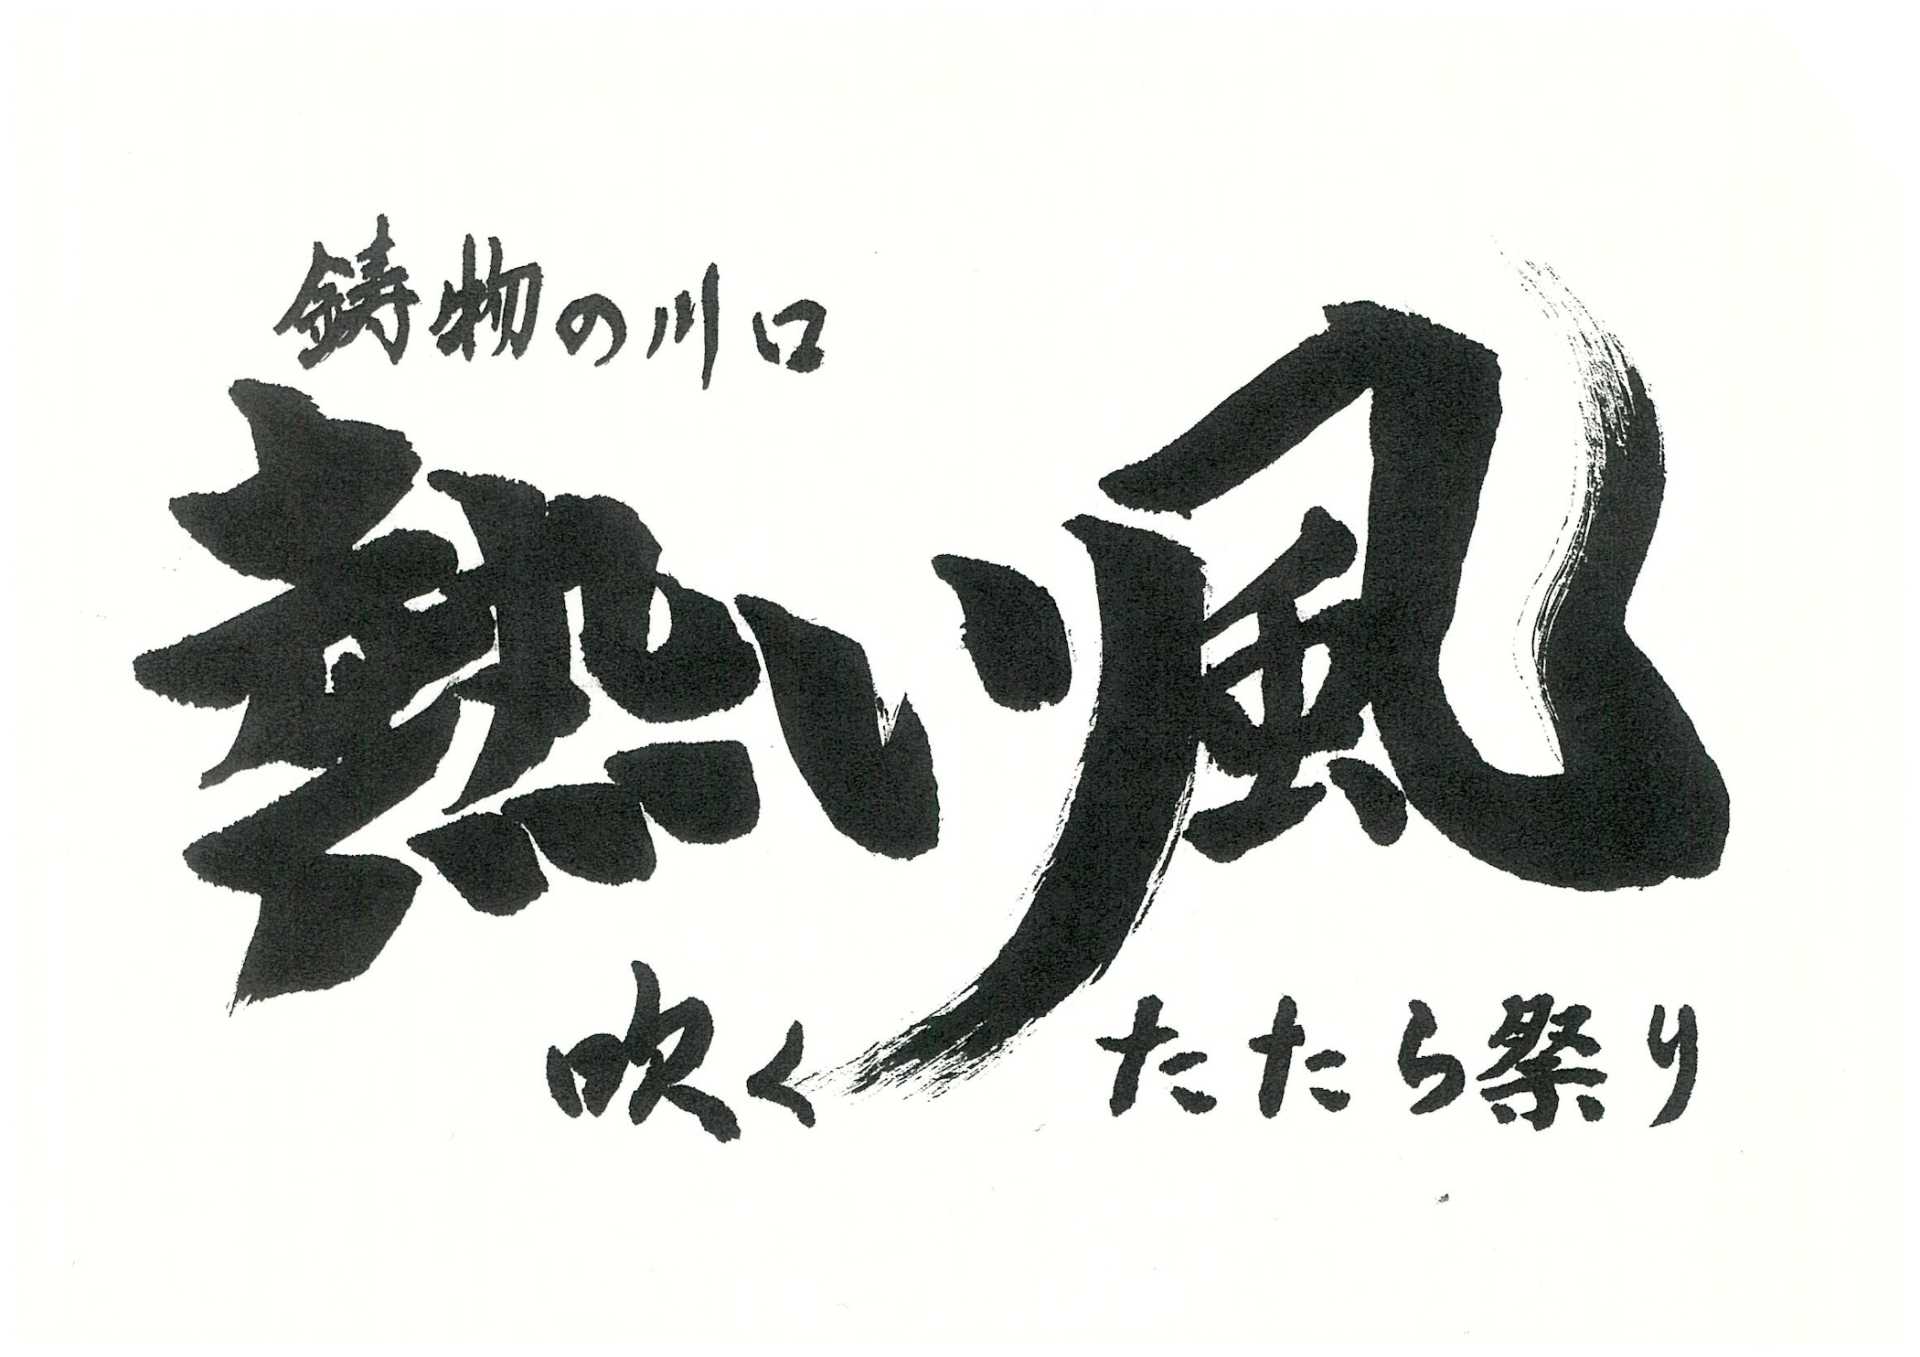 鋳物の川口
熱い風
吹く たたら祭り